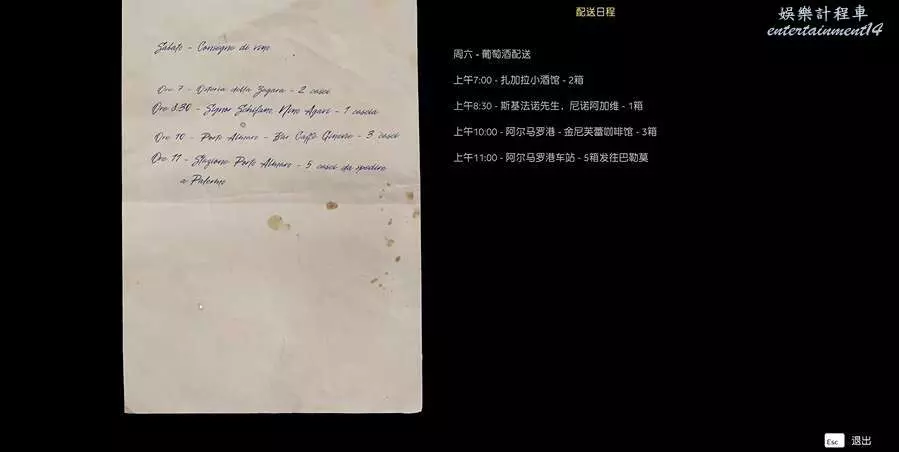 配送日程
娛樂計程車
entertainment14
Sabato - Consegne di vino
Ore 7 - Osteria della Zagara - 2 casci
Ore 8.30 - Signor Schifano, Nino Agavi - 1 cascia
Ore 10 - Porto Almaro - Bar Caffè Ginevre - 3 casci
Ore 11 - Stazione Porto Almaro - 5 casci da spedire
a Palermo
周六 - 葡萄酒配送
上午7:00 - 扎加拉小酒馆 - 2箱
上午8:30 - 斯基法诺先生，尼诺阿加维 - 1箱
上午10:00 - 阿尔马罗港 - 金尼芙蕾咖啡馆 - 3箱
上午11:00 - 阿尔马罗港车站 - 5箱发往巴勒莫
Esc 退出